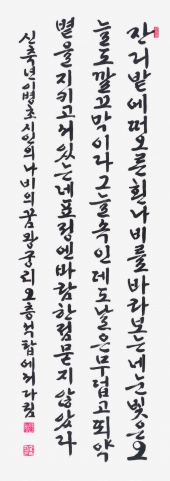 잔디밭에 떠오른 흰나비를 바라보는 네 눈빛은 오
늘도 깔끄막이라 그늘 속인데도 날은 무덥고 뙤약
볕을 지키고 서 있는 네 표정엔 바람 한 점 묻지 않았다
신축년 이병초 시인의 나비의 꿈 왕궁리 오층석탑에서 다림